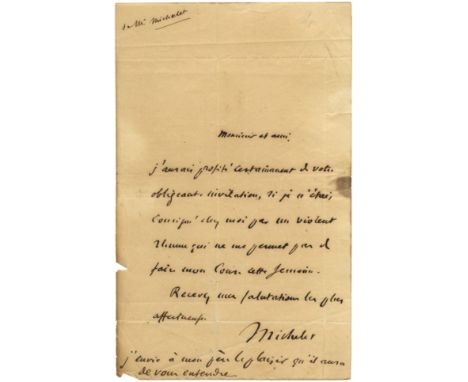 Mr Michelet
Monsieur et ami,
j'aurais profité certainement de votre
obligeante invitation, si je n'étais
consigné chez moi par un violent
rhume qui ne me permet pas de
faire mon Cours cette semaine.
Recevez mes salutations les plus
affectueuses.
Michelet
j'envie à mon père le plaisir qu'il aura
de vous entendre.